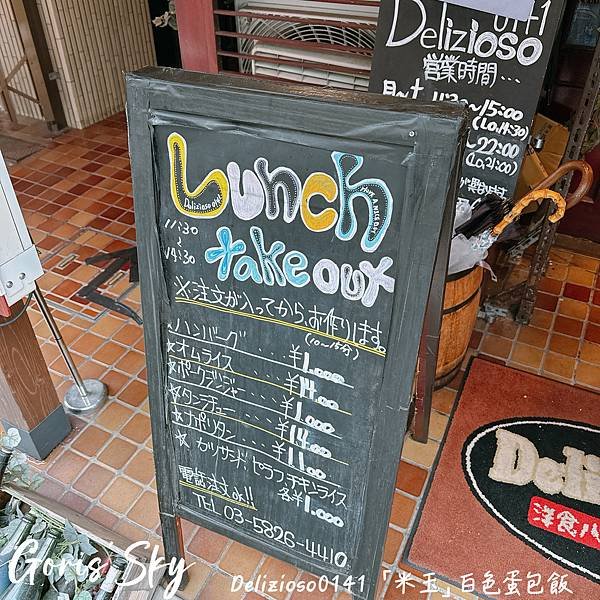 Delizioso 0141
営業時間...
15:00
(L.O.14:30)
~22:00
(L.O.21:00)
Lunch
Delizioso 0141
HAVE A NICE DAY
11:30
~
14:30
take out
※注文が入ってから、お作りします。
(10~15分)
★ハンバーグ....¥1,000
★オムライス....¥1400
★ポークジンジャー....¥1,000
★タンシチュー....¥1,400
★ナポリタン....¥1100
★カツサンド、ピラフ、チキンライス
各¥1,000
電話注文ok!!
TEL 03-5826-4410
Deli
洋食バ
Goris Sky
Delizioso0141「米玉」百色蛋包飯